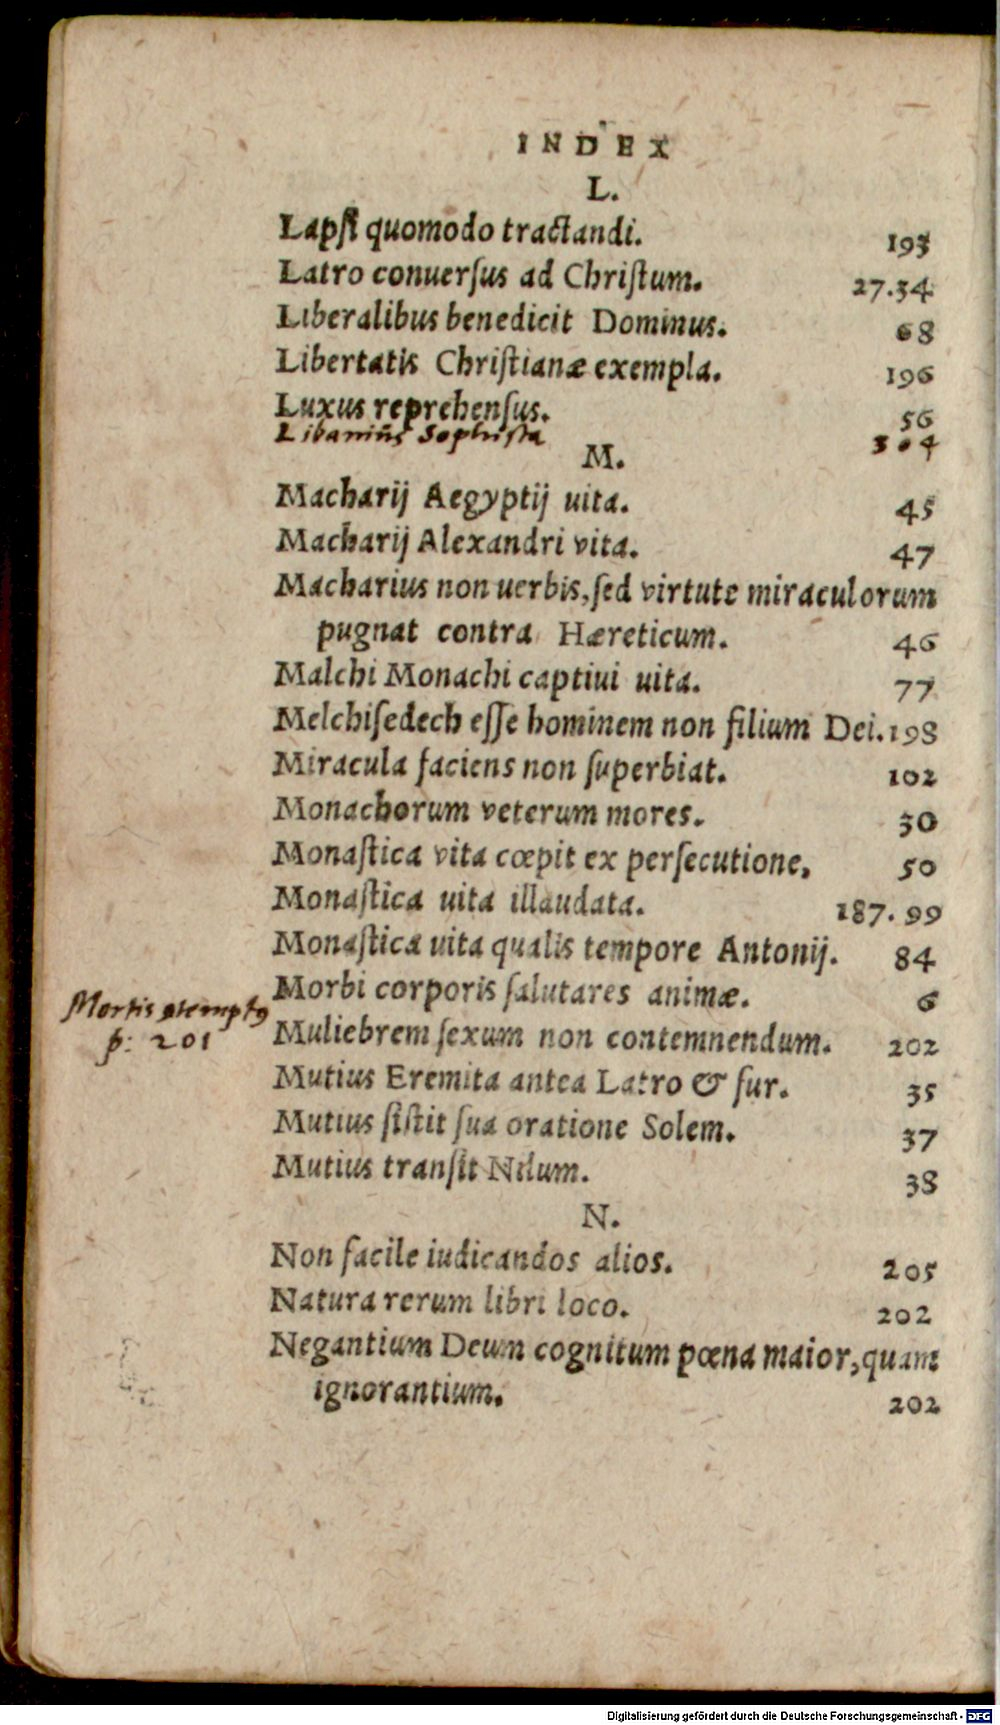 INDEX
L.
Lapsi quomodo tractandi. 193
Latro conuersus ad Christum. 27.34
Liberalibus benedicit Dominus. 68
Libertatis Christianæ exempla. 196
Luxus reprehensus. 56
Libanius Sophista 304
M.
Macharij Aegyptij uita. 45
Macharij Alexandri vita. 47
Macharius non uerbis, sed virtute miraculorum
pugnat contra Hæreticum. 46
Malchi Monachi captiui uita. 77
Melchisedech esse hominem non filium Dei. 198
Miracula faciens non superbiat. 102
Monachorum veterum mores. 30
Monastica vita cœpit ex persecutione. 50
Monastica uita illaudata. 187. 99
Monastica uita qualis tempore Antonij. 84
Morbi corporis salutares animæ. 6
Mortis
p: 201
Muliebrem sexum non contemnendum. 202
Mutius Eremita antea Latro & fur. 35
Mutius sistit sua oratione Solem. 37
Mutius transit Nilum. 38
N.
Non facile iudicandos alios. 205
Natura rerum libri loco. 202
Negantium Deum cognitum pœna maior, quam
ignorantium. 202
Digitalisierung gefördert durch die Deutsche Forschungsgemeinschaft - DFG